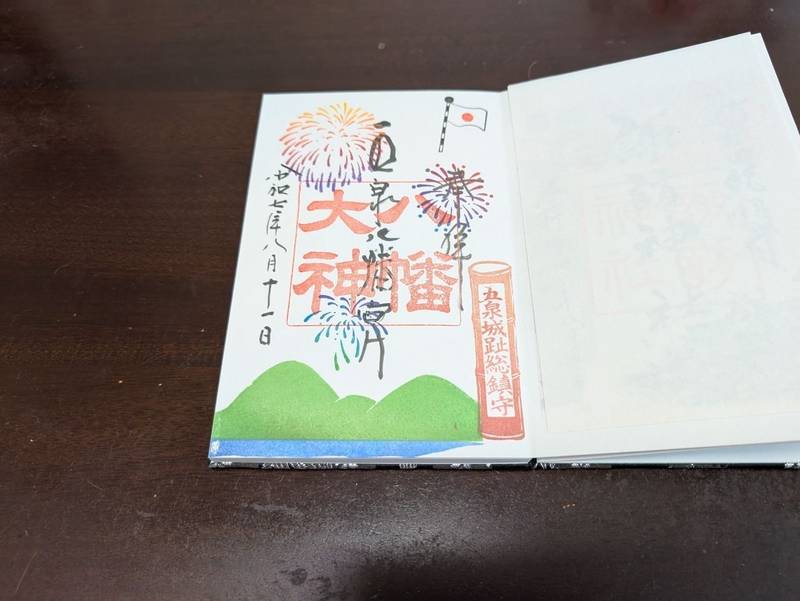 奉拝
五泉八幡宮
八幡
大神
五泉城趾総鎮守
令和七年八月十一日